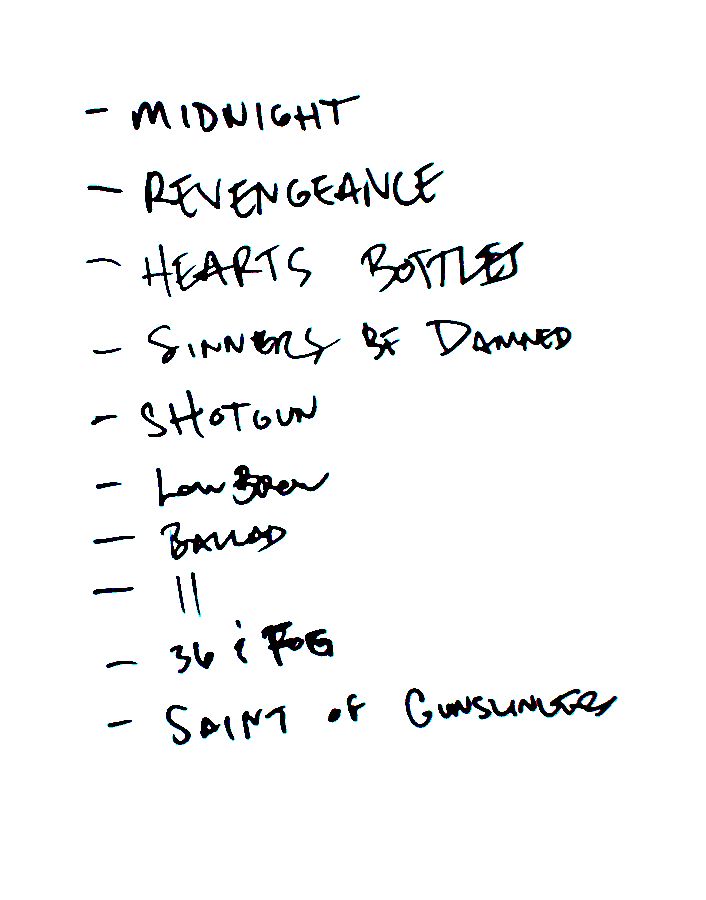 - MIDNIGHT
- REVENGEANCE
- HEARTS BOTTLES
- SINNERS BE DAMNED
- SHOTGUN
- LOW BROW
- BALLAD
- 11
- 36 & FOG
- SAINT OF GUNSLINGERS